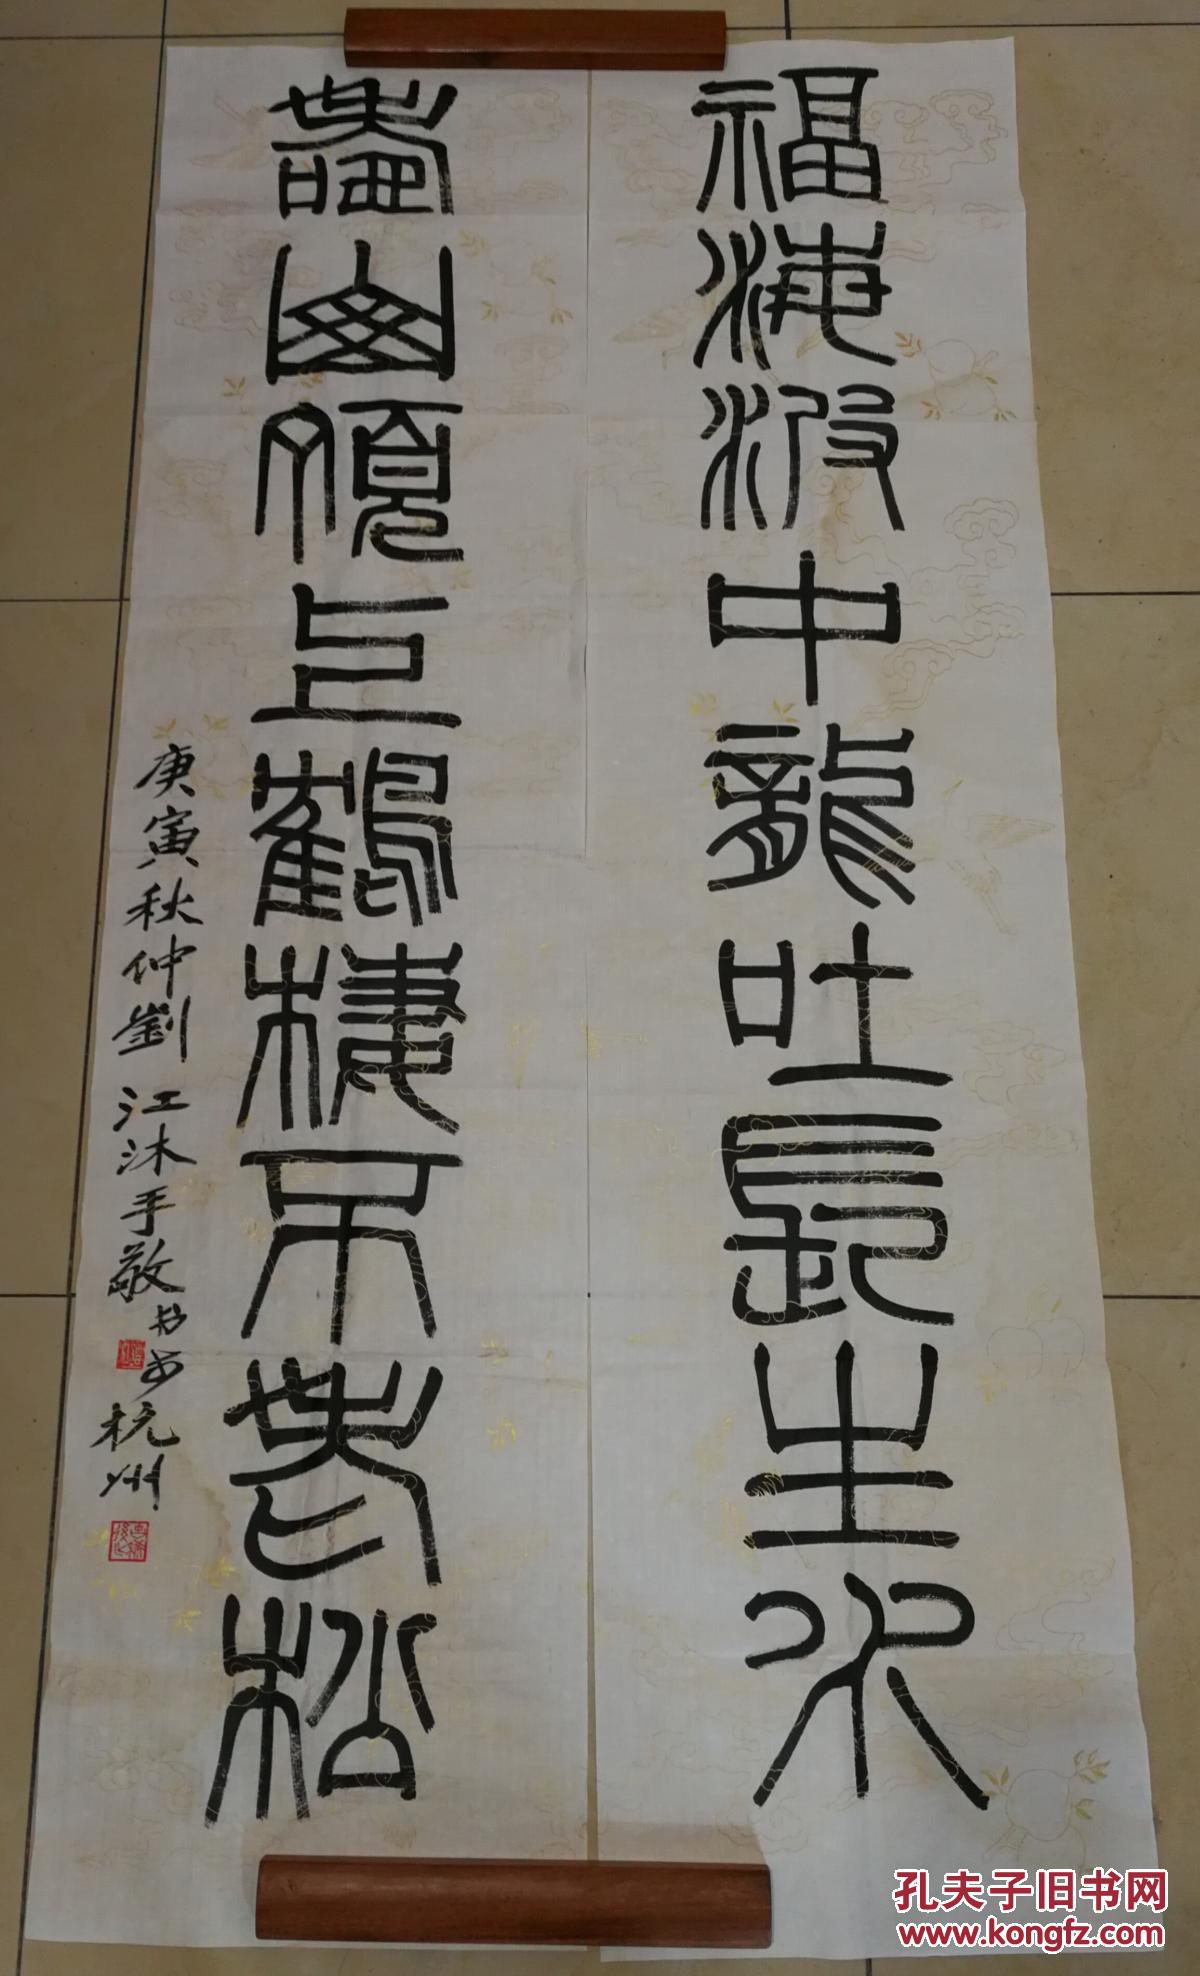 福海波中龍吐長生水
壽頂上鶴棲不老松
庚寅秋仲劉江沐手敬杭州
孔夫子旧书网
www.kongfz.com